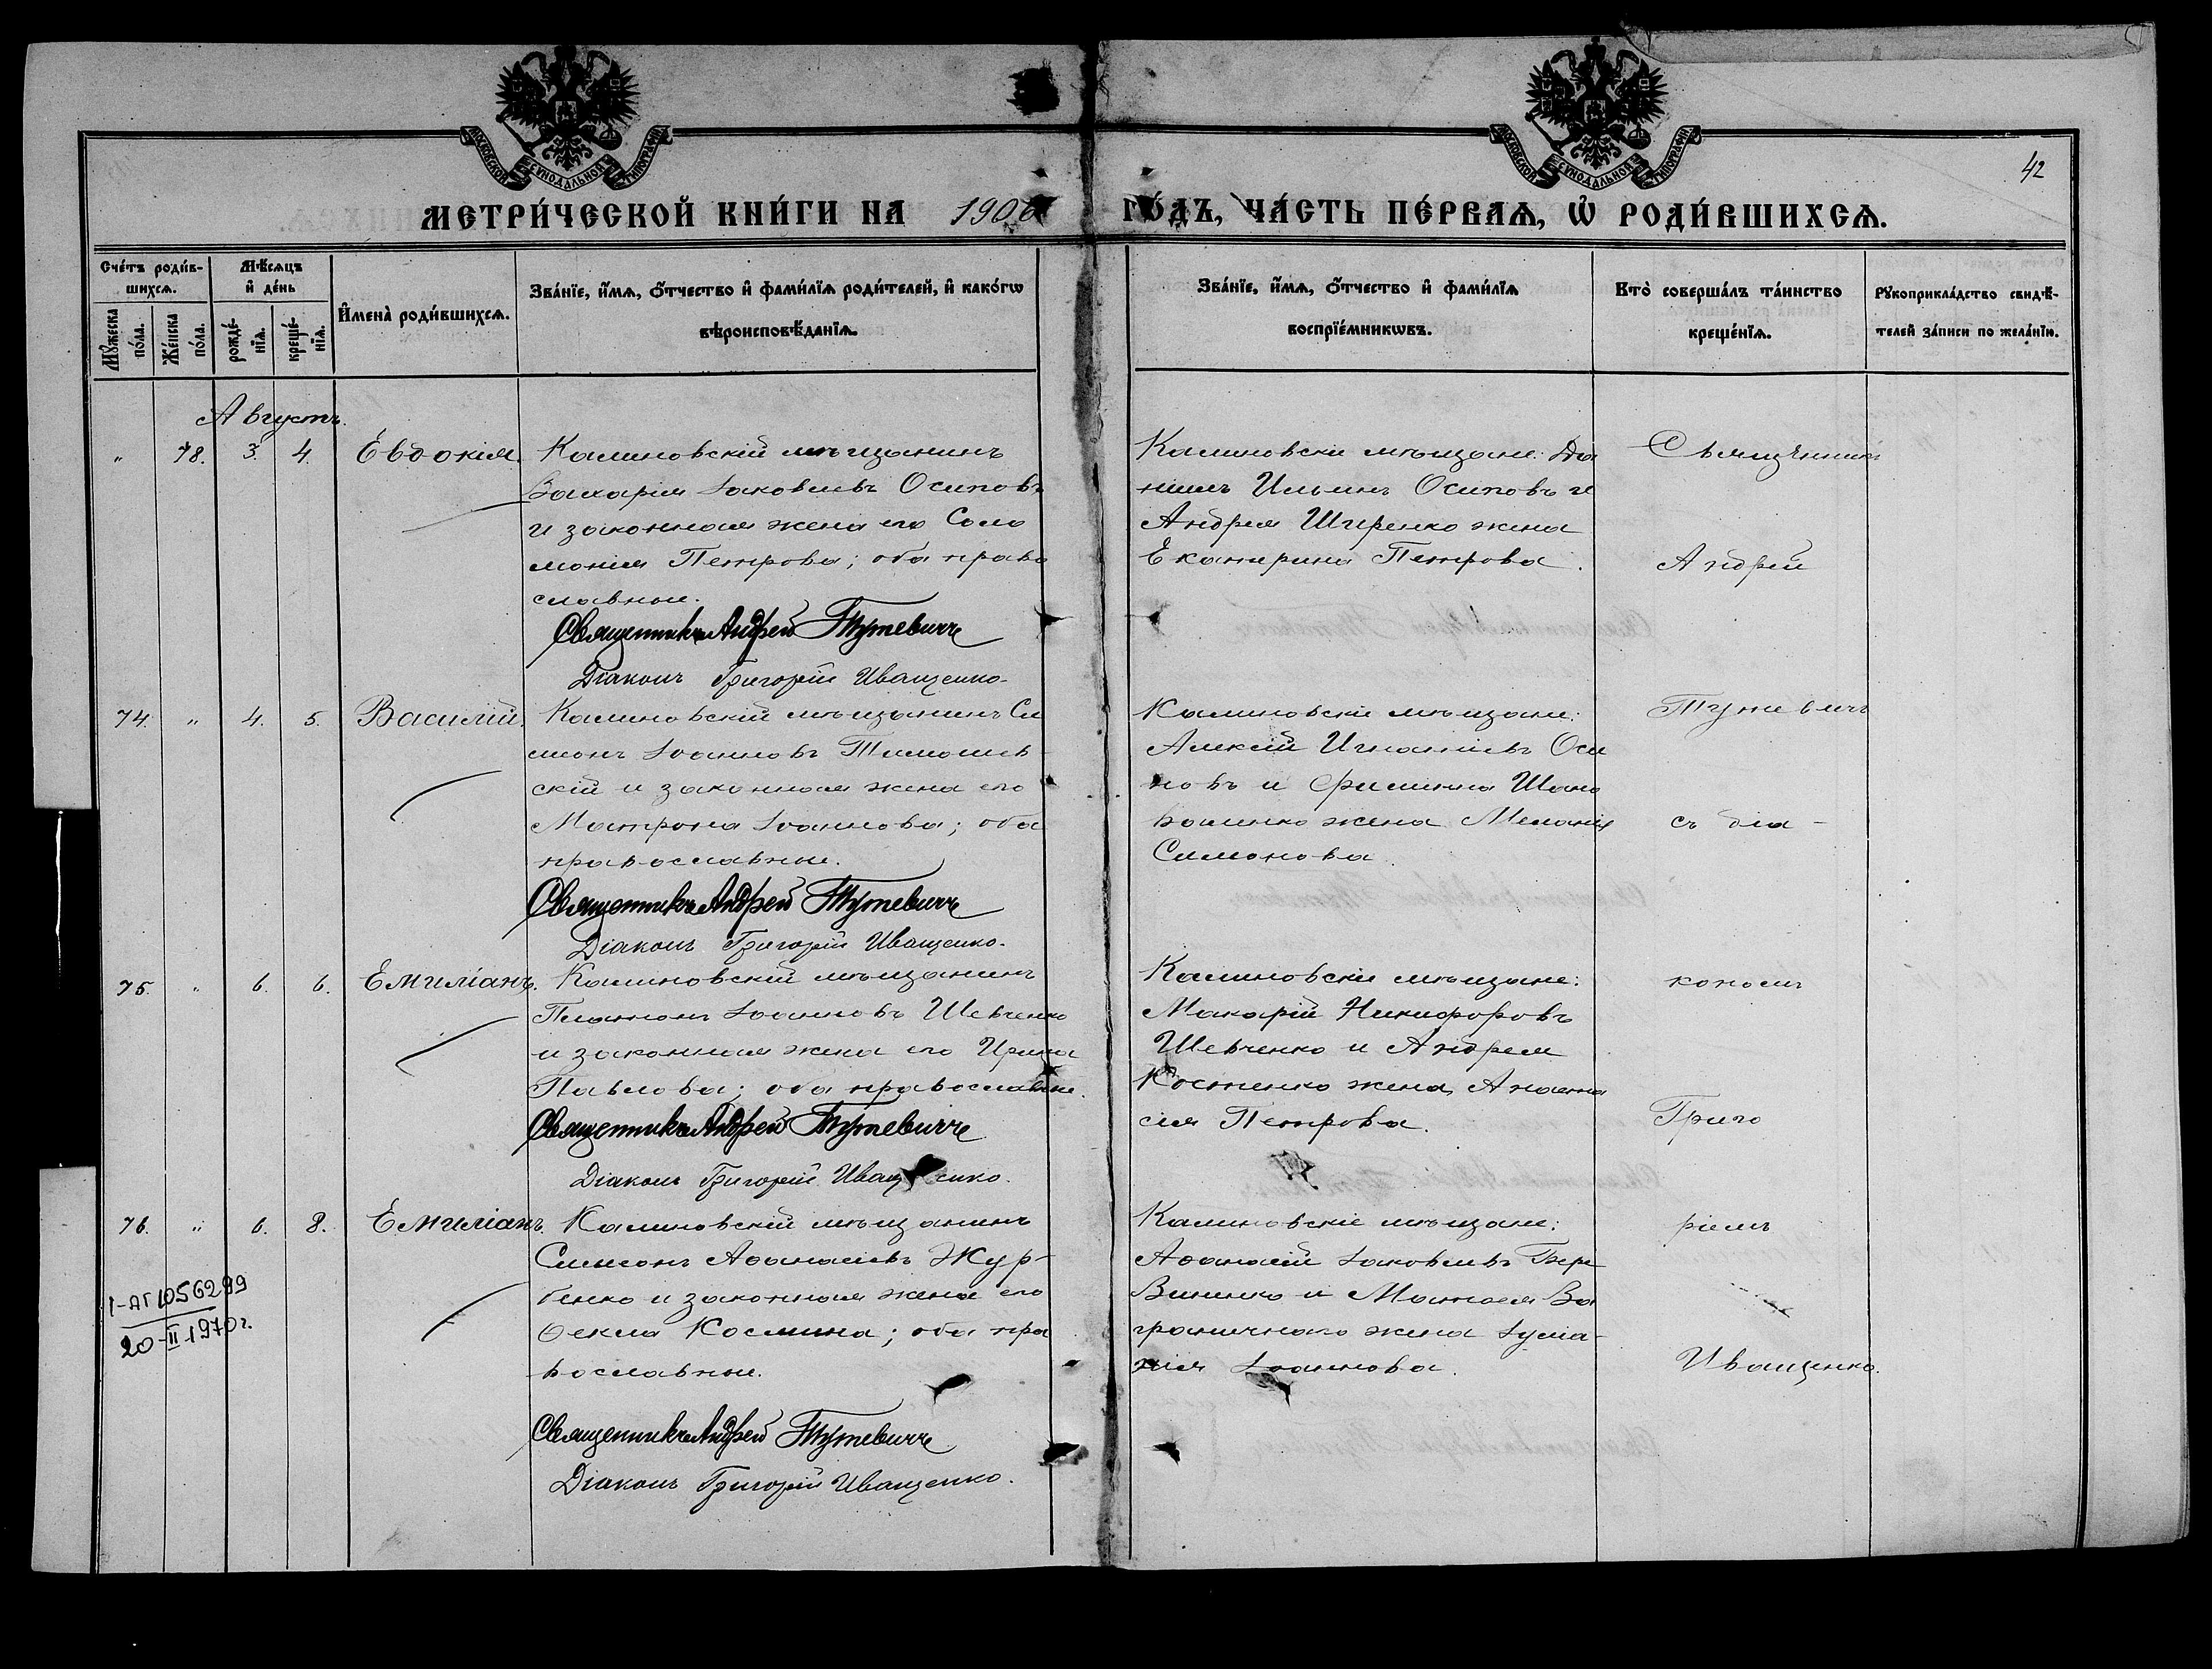 МОСКОВСКОЙ СѴНОДАЛЬНОЙ ТИПОГРАФІИ
МОСКОВСКОЙ СѴНОДАЛЬНОЙ ТИПОГРАФІИ
42
МЕТРИ́ЧЕСКОЙ КНИ́ГИ НА 1906 ГО́ДЪ, ЧА́СТЬ ПЕ́РВАѦ, Ѡ҆ РОДИ́ВШИХСѦ.
Сче́тъ роди́в-
шихсѧ.
Мꙋ́жеска по́ла.
Же́нска по́ла.
Мѣ́сѧцъ
и҆ де́нь
рожде́-
нїѧ.
креще́-
нїѧ.
И҆мена̀ роди́вшихсѧ.
Зва́нїе, и҆́мѧ, ѻ҆́тчество и҆ фами́лїѧ роди́телей, и҆ како́гѡ
вѣроисповѣ́данїѧ.
Зва́нїе, и҆́мѧ, ѻ҆́тчество и҆ фами́лїѧ
воспрїе́мникѡвъ.
Кто̀ соверша́лъ та́инство
креще́нїѧ.
Рꙋкоприкла́дство свидѣ́-
телей за́писи по жела́нїю.
Августъ.
„ 78. 3. 4. Евдокія. Калиновскій мѣщанинъ
Захарія Іаковлевъ Осиповъ
и законная жена его Соло
монія Петрова; оба право
славные.
Священникъ Андрей Тутевичъ
Діаконъ Григорій Иващенко.
Калиновскіе мѣщане: Да
ніилъ Ильинъ Осиповъ и
Андрея Ширенко жена
Екатерина Петрова.
Священникъ
Андрей
74. „ 4. 5. Василій. Калиновскій мѣщанинъ Си
меонъ Іоанновъ Тимошев-
скій и законная жена его
Матрона Іоаннова; оба
православные.
Священникъ Андрей Тутевичъ
Діаконъ Григорій Иващенко.
Калиновскіе мѣщане:
Алексій Игнатіевъ Оси
повъ и Филиппа Шапо
валенко жена Меланія
Симонова.
Тутевичъ
съ діа-
75. „ 6. 6. Емиліанъ. Калиновскій мѣщанинъ
Платонъ Іоанновъ Шевченко
и законная жена его Ирина
Павлова; оба православные.
Священникъ Андрей Тутевичъ
Діаконъ Григорій Иващенко.
Калиновскіе мѣщане:
Макарій Никифоровъ
Шевченко и Андрея
Костенко жена Анаста
сія Петрова.
кономъ
Григо
76. „ 6. 8. Емиліанъ. Калиновскій мѣщанинъ
Симеонъ Аѳанасіевъ Жур-
бенко и законная жена его
Ѳекла Космина; оба пра
вославные.
Священникъ Андрей Тутевичъ
Діаконъ Григорій Иващенко.
Калиновскіе мѣщане:
Аѳанасій Іаковлевъ
и Матѳея За
граничнаго жена Іуліа-
нія Іоаннова.
ріемъ
Иващенко.
I-АГ 1056299
20-II 1970г.